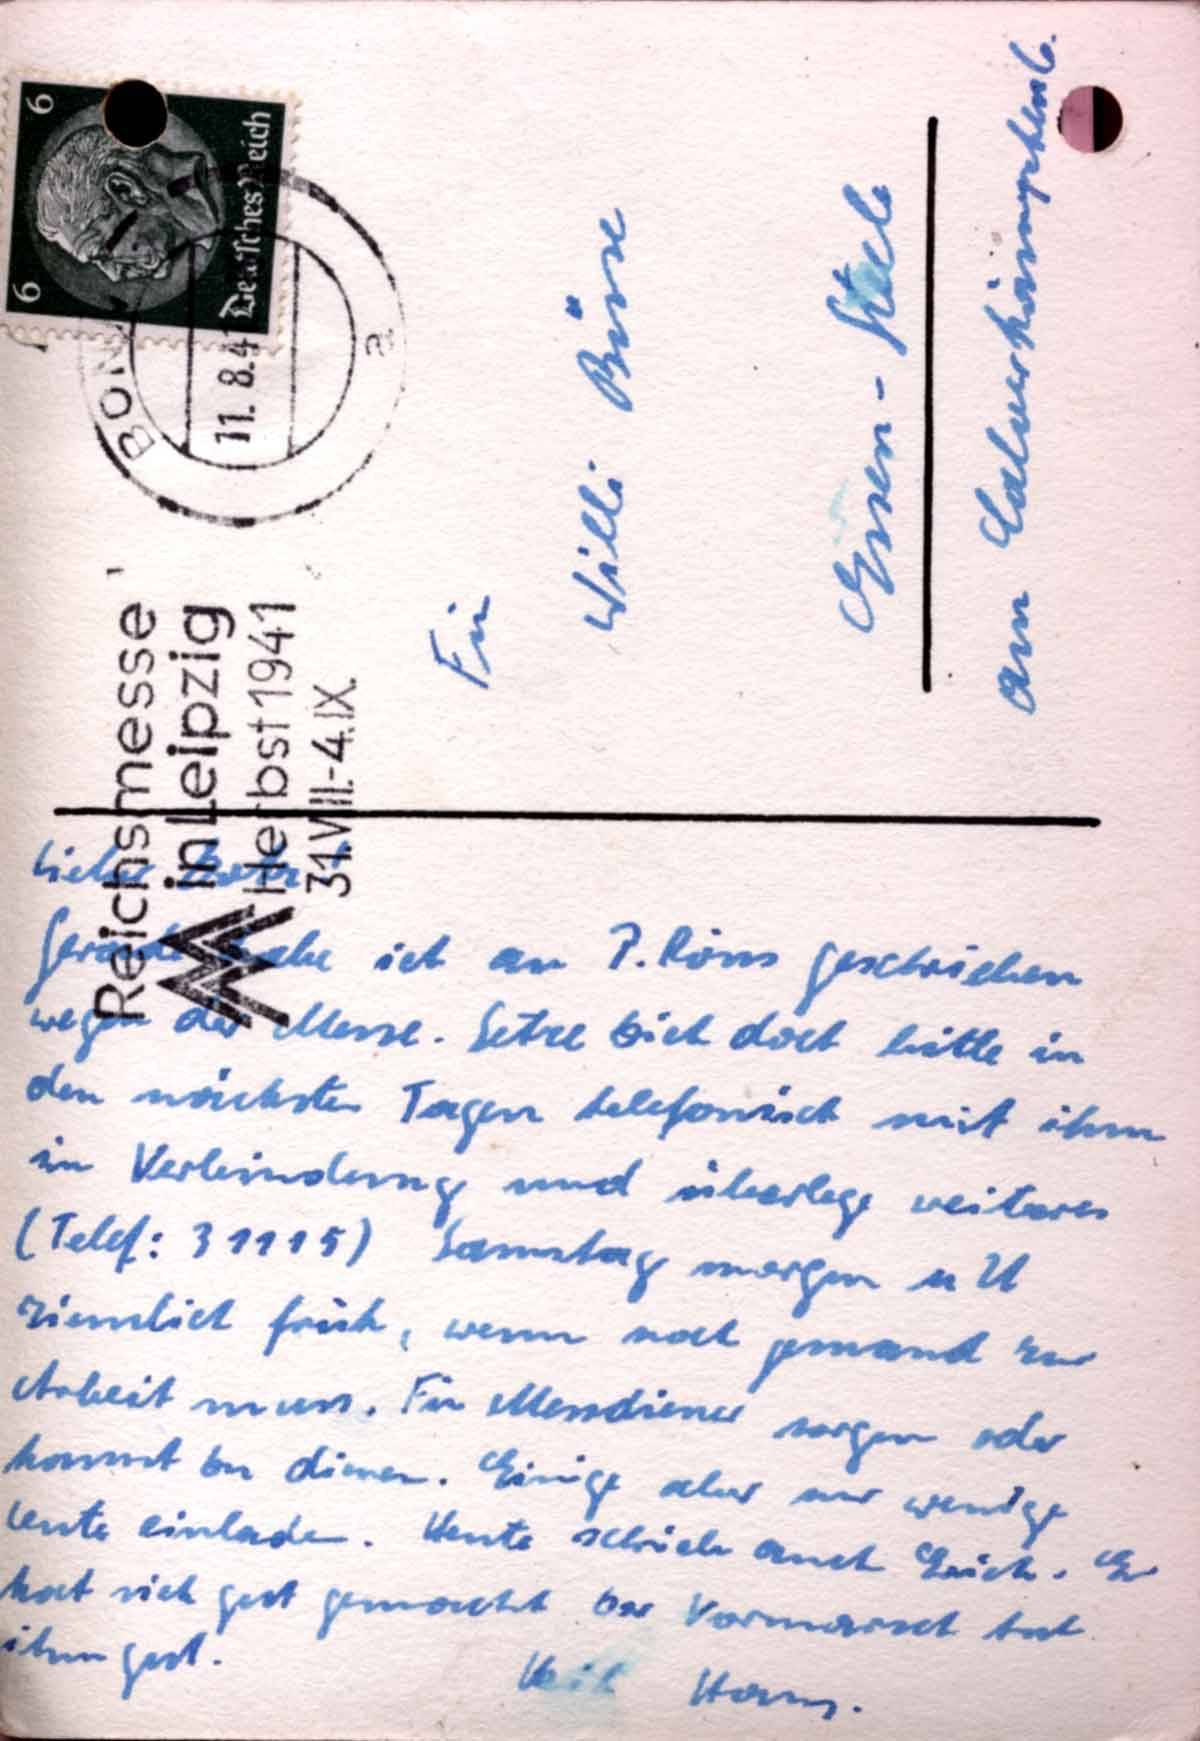 6
6
Deutsches Reich
BONN
11. 8. 41
a
Reichsmesse
in Leipzig
Herbst 1941
31.VIII.-4.IX.
Für
Willi Büse
Essen-Steele
am
Lieber
Gerade habe ich an P. Röms geschrieben
wegen der Messe. Setze Dich doch bitte in
den nächsten Tagen telefonisch mit ihm
in Verbindung und überlege weiteres
(Telef: 31115) Samstag morgen u U
ziemlich früh, wenn noch jemand zur
Arbeit muss. Für Messdiener sorgen oder
kommt Du dienen. Einige aber nur wenige
Leute einladen. Heute schrieb auch Erich. Er
hat sich gut gemacht Der Vormarsch tut
ihm gut.
Heil Hans.